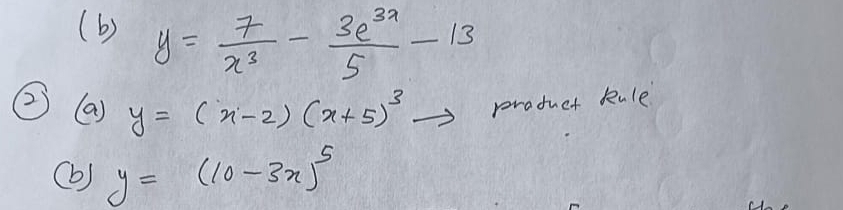 (b) y = 7/x³ - 3e³ˣ/5 - 13
② (a) y = (x-2) (x+5)³ → product Rule
(b) y = (10-3x)⁵